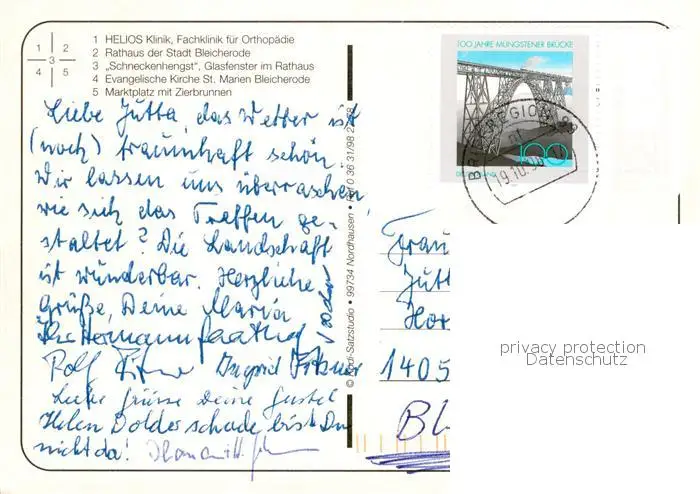 1 HELIOS Klinik, Fachklinik für Orthopädie
2 Rathaus der Stadt Bleicherode
3 „Schneckenhengst", Glasfenster im Rathaus
4 Evangelische Kirche St. Marien Bleicherode
5 Marktplatz mit Zierbrunnen
1 2
3
4 5
Liebe Jutta, das Wetter ist
(noch) traumhaft schön.
Wir lassen uns überraschen
wie sich das Treffen ge-
staltet? Die Landschaft
ist wunderbar. Herzliche
Grüße, Deine Maria
Ihr Hermann
Rolf Ingrid
Liebe Grüsse Deine Gustel
Helen Doldes schade bist Du
nicht da!
© Nordi-Satzstudio • 99734 Nordhausen •
100 JAHRE MÜNGSTENER BRÜCKE
100
BRIEFREGION
19.10.98
Frau
Jutt
Hor
1405
BL
privacy protection
Datenschutz